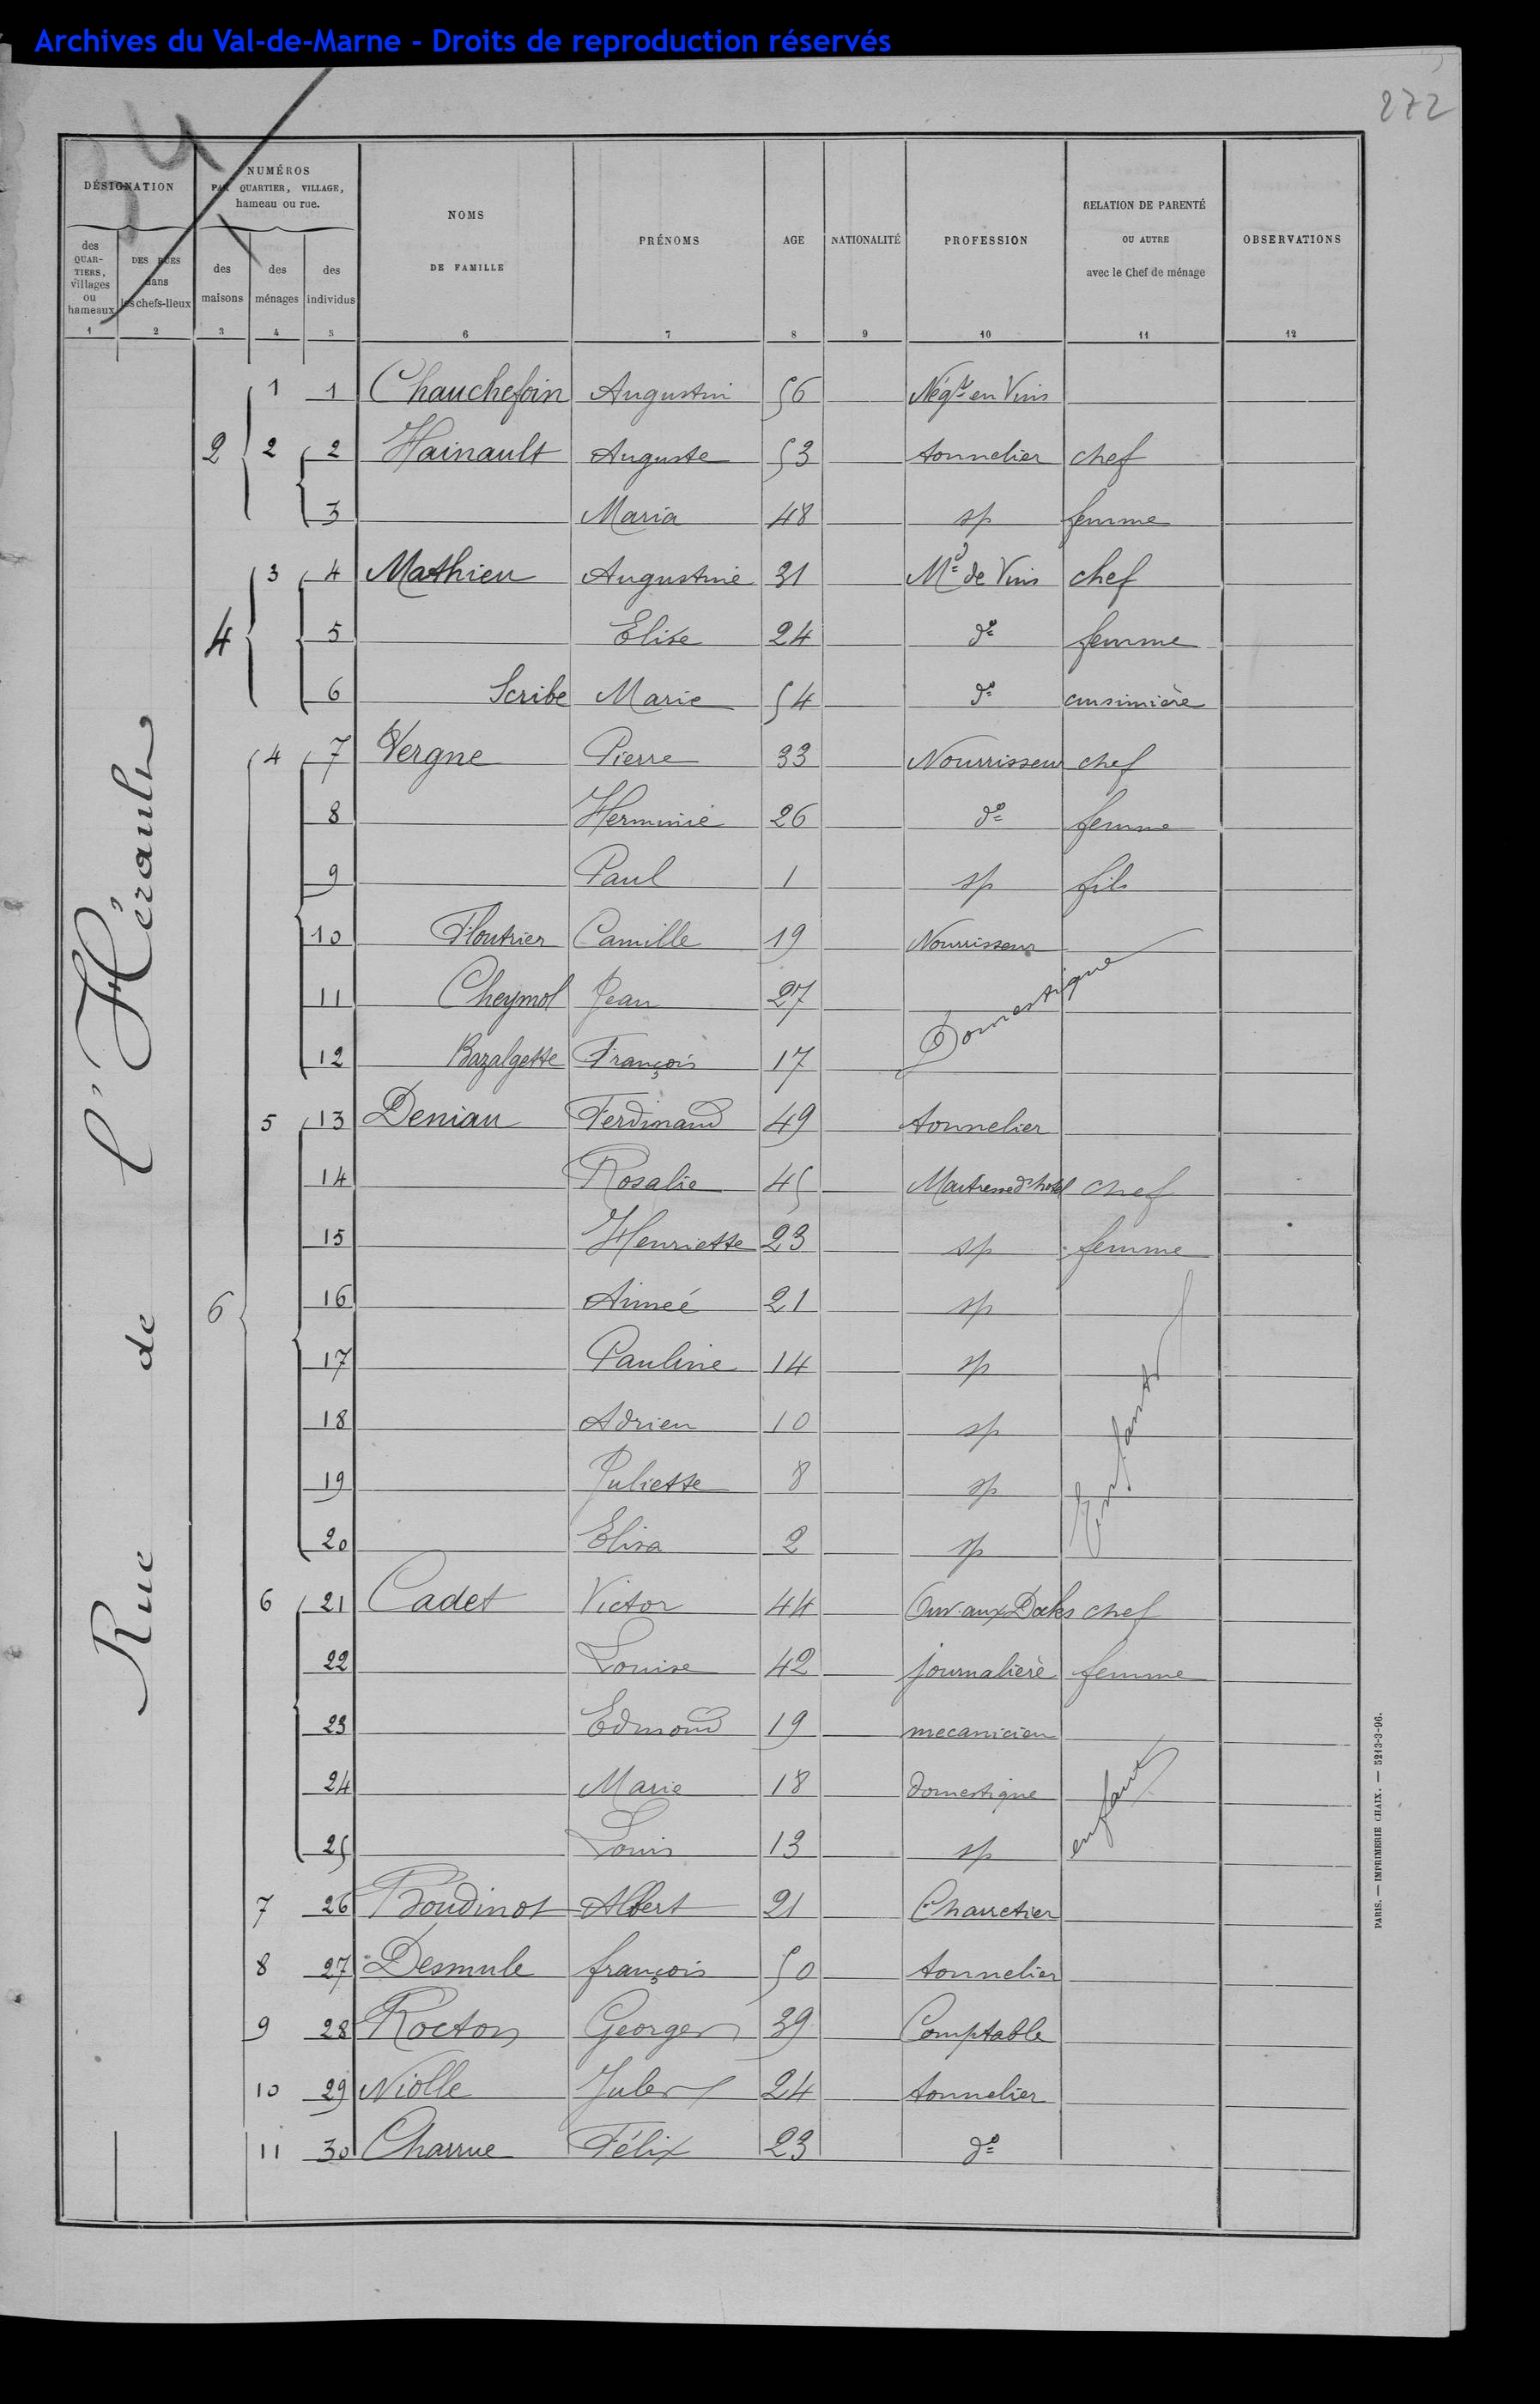 Archives du Val-de-Marne - Droits de reproduction réservés
272
34
DÉSIGNATION
NUMÉROS
PAR QUARTIER, VILLAGE,
hameau ou rue.
NOMS
DE FAMILLE
PRÉNOMS
AGE
NATIONALITÉ
PROFESSION
RELATION DE PARENTÉ
OU AUTRE
avec le Chef de ménage
OBSERVATIONS
des
QUAR-
TIERS,
villages
ou
hameaux
DES RUES
dans
les chefs-lieux
des
maisons
des
ménages
des
individus
1 2 3 4 5 6 7 8 9 10 11 12
Rue de l'Hérault
1 1 Chauchefoin Augustin 56 Négt en Vins
2 2 2 Hainault Auguste 53 tonnelier chef
3 Maria 48 sp femme
3 4 Mathieu Augustine 31 Md de Vins chef
4 5 Elise 24 do femme
6 Scribe Marie 54 do cuisinière
4 7 Vergne Pierre 33 Nourrisseur chef
8 Herminie 26 do femme
9 Paul 1 sp fils
10 Floutrier Camille 19 Nourrisseur
11 Cheymol Jean 27 Domestique
12 Bazalgette François 17
5 13 Deniau Ferdinand 49 tonnelier
14 Rosalie 45 Maitresse d'hotel chef
15 Henriette 23 sp femme
6 16 Aimeé 21 sp
17 Pauline 14 sp
18 Adrien 10 sp Enfants
19 Juliette 8 sp
20 Elisa 2 sp
6 21 Cadet Victor 44 Ouv. aux Docks chef
22 Louise 42 journalière femme
23 Edmond 19 mecanicien
24 Marie 18 domestique enfants
25 Louis 13 sp
7 26 Boudinot Albert 21 Charretier
8 27 Desmule françois 50 tonnelier
9 28 Rocton Georges 39 Comptable
10 29 Niolle Jules 24 tonnelier
11 30 Charrue Félix 23 do
PARIS. — IMPRIMERIE CHAIX. — 5213-3-96.